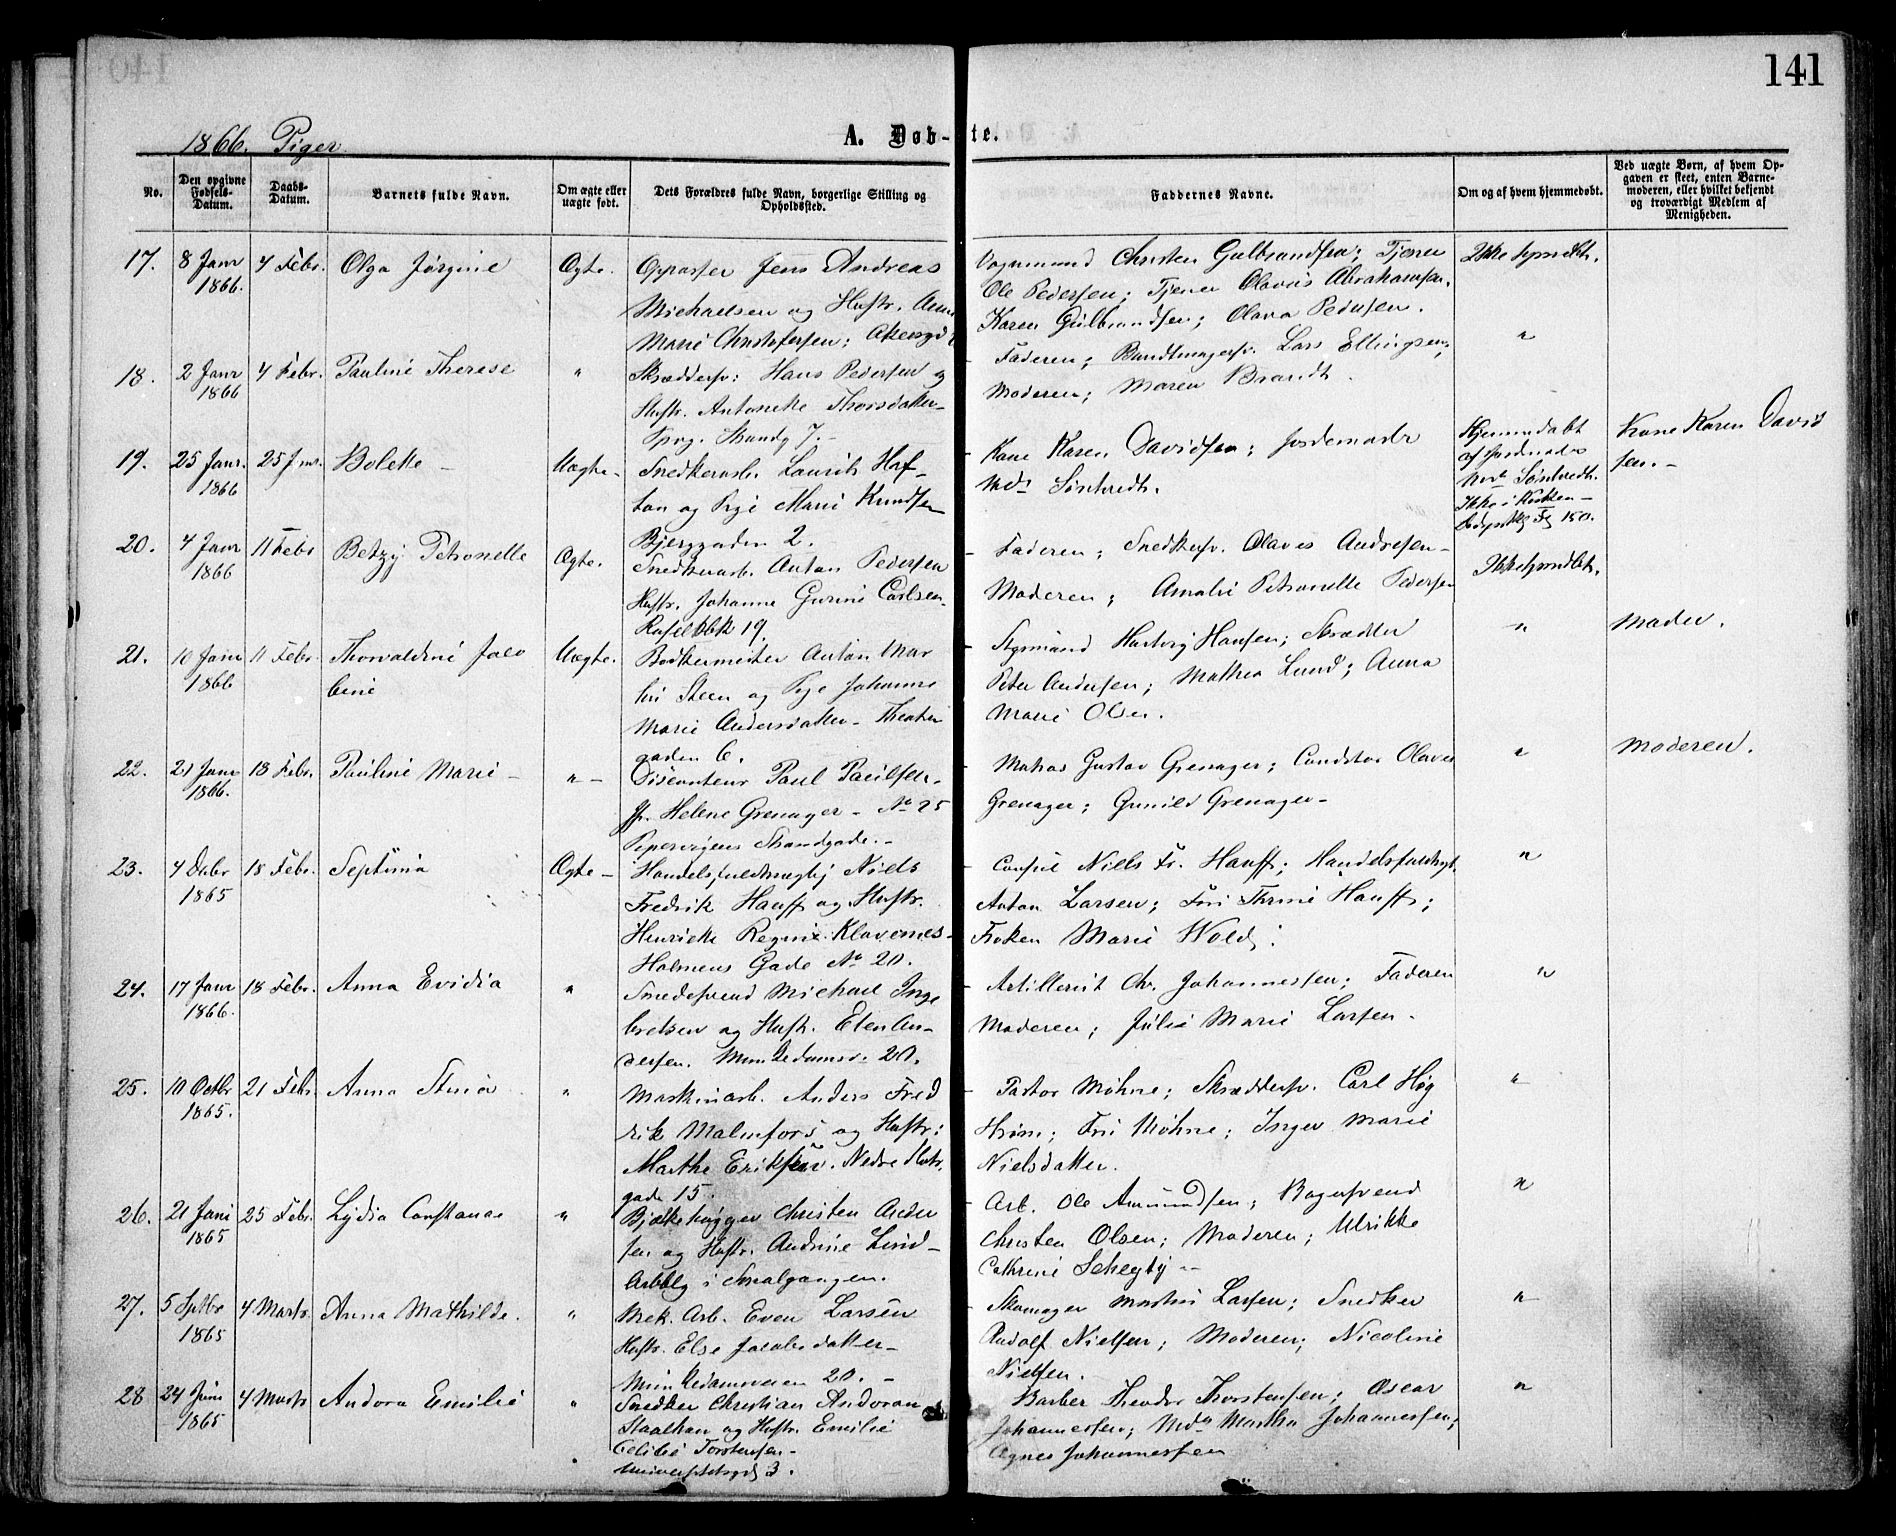 141
1866. Piger.
A. Døb-te.
No.
Den opgivne Fødsels-Datum.
Daabs-Datum.
Barnets fulde Navn.
Om ægte eller uægte født.
Dets Forældres fulde Navn, borgerlige Stilling og Opholdssted.
Faddernes Navne.
Om og af hvem hjemmedøbt.
Ved uægte Børn, af hvem Opgaven er skeet, enten Barnemoderen, eller hvilket bekjendt og troværdigt Medlem af Menigheden.
17. 8 Janr 1866. 4 Febr. Olga Jørgine Ægte.
Oppasser Jens Andreas
Michaelsen og Hustr. Anne
Marie Christofersen; Akersgd
Vognmand Christen Gulbrandsen; Tjener
Ole Pedersen; Tjener Olavus Abrahamsen,
Karen Gulbrandsen; Olava Pedersen.
Ikke hjemdbt.
18. 2 Janr 1866 4 Febr. Pauline Therese "
Skræddersv: Hans Pedersen og
Hustr. Antonette Thorsdatter
Pprvg. Strandg 7.-
Faderen; Bundtmagersv. Lars Ellingsen;
Moderen; Maren Brandt.
"
19. 25 Janr. 1866 25 Janr. Bolette - Uægte-
Snedkerarb. Laurits Haf-
tan og Pige Marie Knudsen
Bjerggaden 2.
- Kone Karen Davidsen; Jordemoder
Md: Sönbredt.
Hjemmedøbt
af Jordmoder
Md: Sönbredt.
Ikke i Kirken
Kone Karen David
sen.-
20. 4 Janr 1866 11 Febr Betzy Petronelle Ægte.
Snedkerarb. Anton Pedersen
Hustr. Johanne Gurine Carlsen.
19.
- Faderen; Snedkersv. Olaves Andresen-
Moderen; Amalie Petronelle Pedersen
Ikke hjemdbt.
21. 10 Janr 1866 11 Febr. Thorvaldine Jaco
bine Uægte.
Bødkermester Anton Mar
tin Steen og Pige Johanne
Marie Andersdatter- Theater
gaden 6.
- Styrmand Hartvig Hansen; Skrædder
Peter Andersen; Mathea Lund; Anna
Marie Olsen.
" Moder.
22. 21 Janr 1866. 18 Febr. Pauline Marie - "-
Paul Paulsen.
Helene Grenager - No 25
Pipervigens Strandgade.-
- Matros Gustav Grenager; Olaves
Grenager; Gunild Grenager-
" Moderen.
23. 4 Decbr 1865 18 Febr. Septima Ægte-
Handelsfuldmægtig Niels
Fredrik Hauff og Hustr.
Henriette Regine Klavenes-
Holmens Gade No 20.
- Consul Niels Fr. Hauff; Handelsfuldmgt.
Anton Larsen; Fru Thrine Hauff;
Frøken Marie Wold;
"
24. 17 Janr 1866. 18 Febr. Anna Evidia "
Smedesvend Michael Inge
bretsen og Hustr. Elen An-
dersen. Munkedamsv. 20.
- Artillerist Chr. Johannessen; Faderen
Moderen; Julie Marie Larsen.
"
25. 10 Octbr 1865. 21 Febr. Anna Stina "
Maskinarb. Anders Fred
rik Malmfors og Hustr:
Marthe Eriksen. Nedre Slots
gade 15.
- Pastor Møhne; Skræddersv. Carl Høg
Strøm; Fru Møhne; Inger Marie
Nielsdatter.
"
26. 21 Juni 1865 25 Febr. Lydia Constance "
Bjælkehugger Christen Ander
sen og Hustr. Andrine Lind-
Arbblg i Smalgangen.
- Arb. Ole Amundsen; Bagersvend
Christen Olsen; Moderen; Ulrikke
Cathrine Schegby --
"
27. 5 Sptbr 1865 4 Marts. Anna Mathilde. "
Mek. Arb. Even Larsen
Hustr. Else Jacobsdatter-
Munkedamsveien 20. -
- Skomager Martin Larsen; Snedker
Rudolf Nielsen; Moderen; Nicoline
Nielsen.
"
28 24 Juni 1865 4 Marts Andora Emilie "
Snedker Christian Andoran
Staalhan og Hustr. Emilie
Torstensen-
Universitetsgd 3.
Barber Theodor Thorstensen; Oscar
Johannessen; Md: Martha Johannessen;
Agnes Johannessen
"